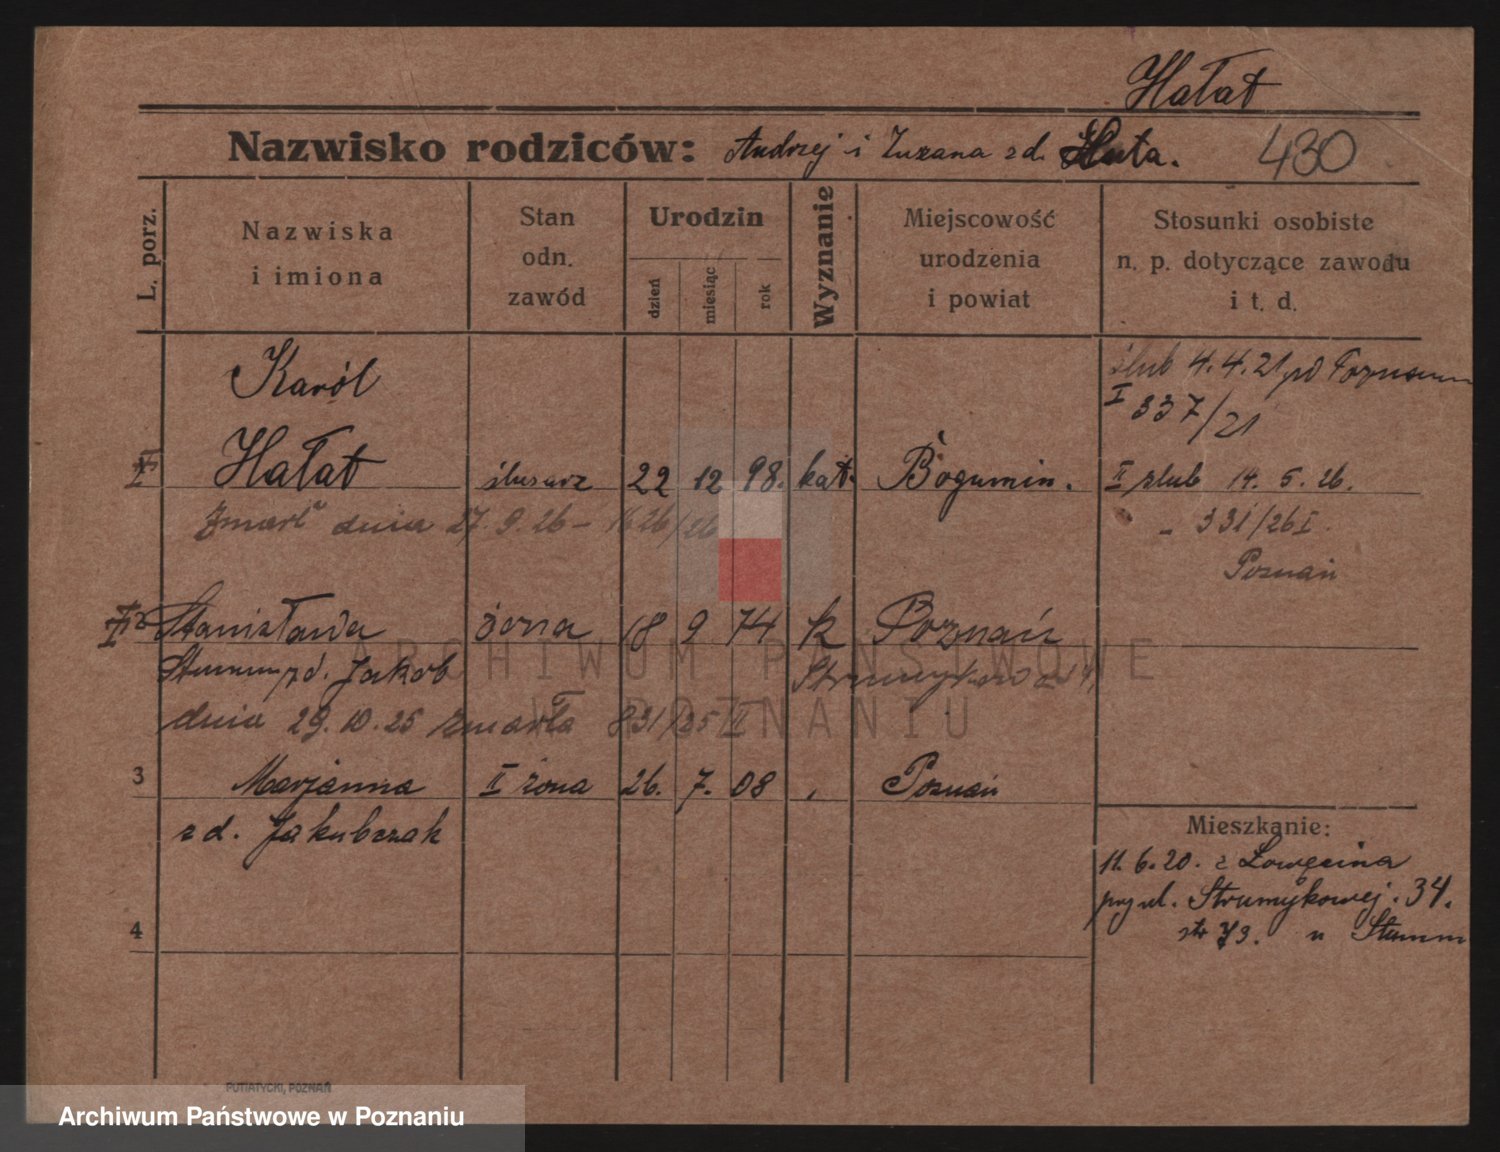 Hałat
Nazwisko rodziców: Andrzej i Zuzana zd. Huta. 430
L. porz.
Nazwiska
i imiona
Stan
odn.
zawód
Urodzin
dzień
miesiąc
rok
Wyznanie
Miejscowość
urodzenia
i powiat
Stosunki osobiste
n. p. dotyczące zawodu
i t. d.
Karól
Hałat ślusarz 22 12 98. kat. Bogumin.
zmarł dnia 27. 9. 26 - 1626/26
ślub 4.4.21
I 337/21
II ślub 14. 5. 26.
- 331/26 I.
Poznań
Stanisława żona 18 9 74 k Poznań
Jakob
dnia 29. 10. 25 zmarła 831/25 II
3 Marjanna II żona 26. 7. 08 Poznań
zd. Jakubczak
4
Mieszkanie:
11. 6. 20. z Lowęcina
przy ul. Strumykowej. 34.
str 73. u Stumm
PUTIATYCKI, POZNAŃ
ARCHIWUM PAŃSTWOWE
W POZNANIU
Archiwum Państwowe w Poznaniu